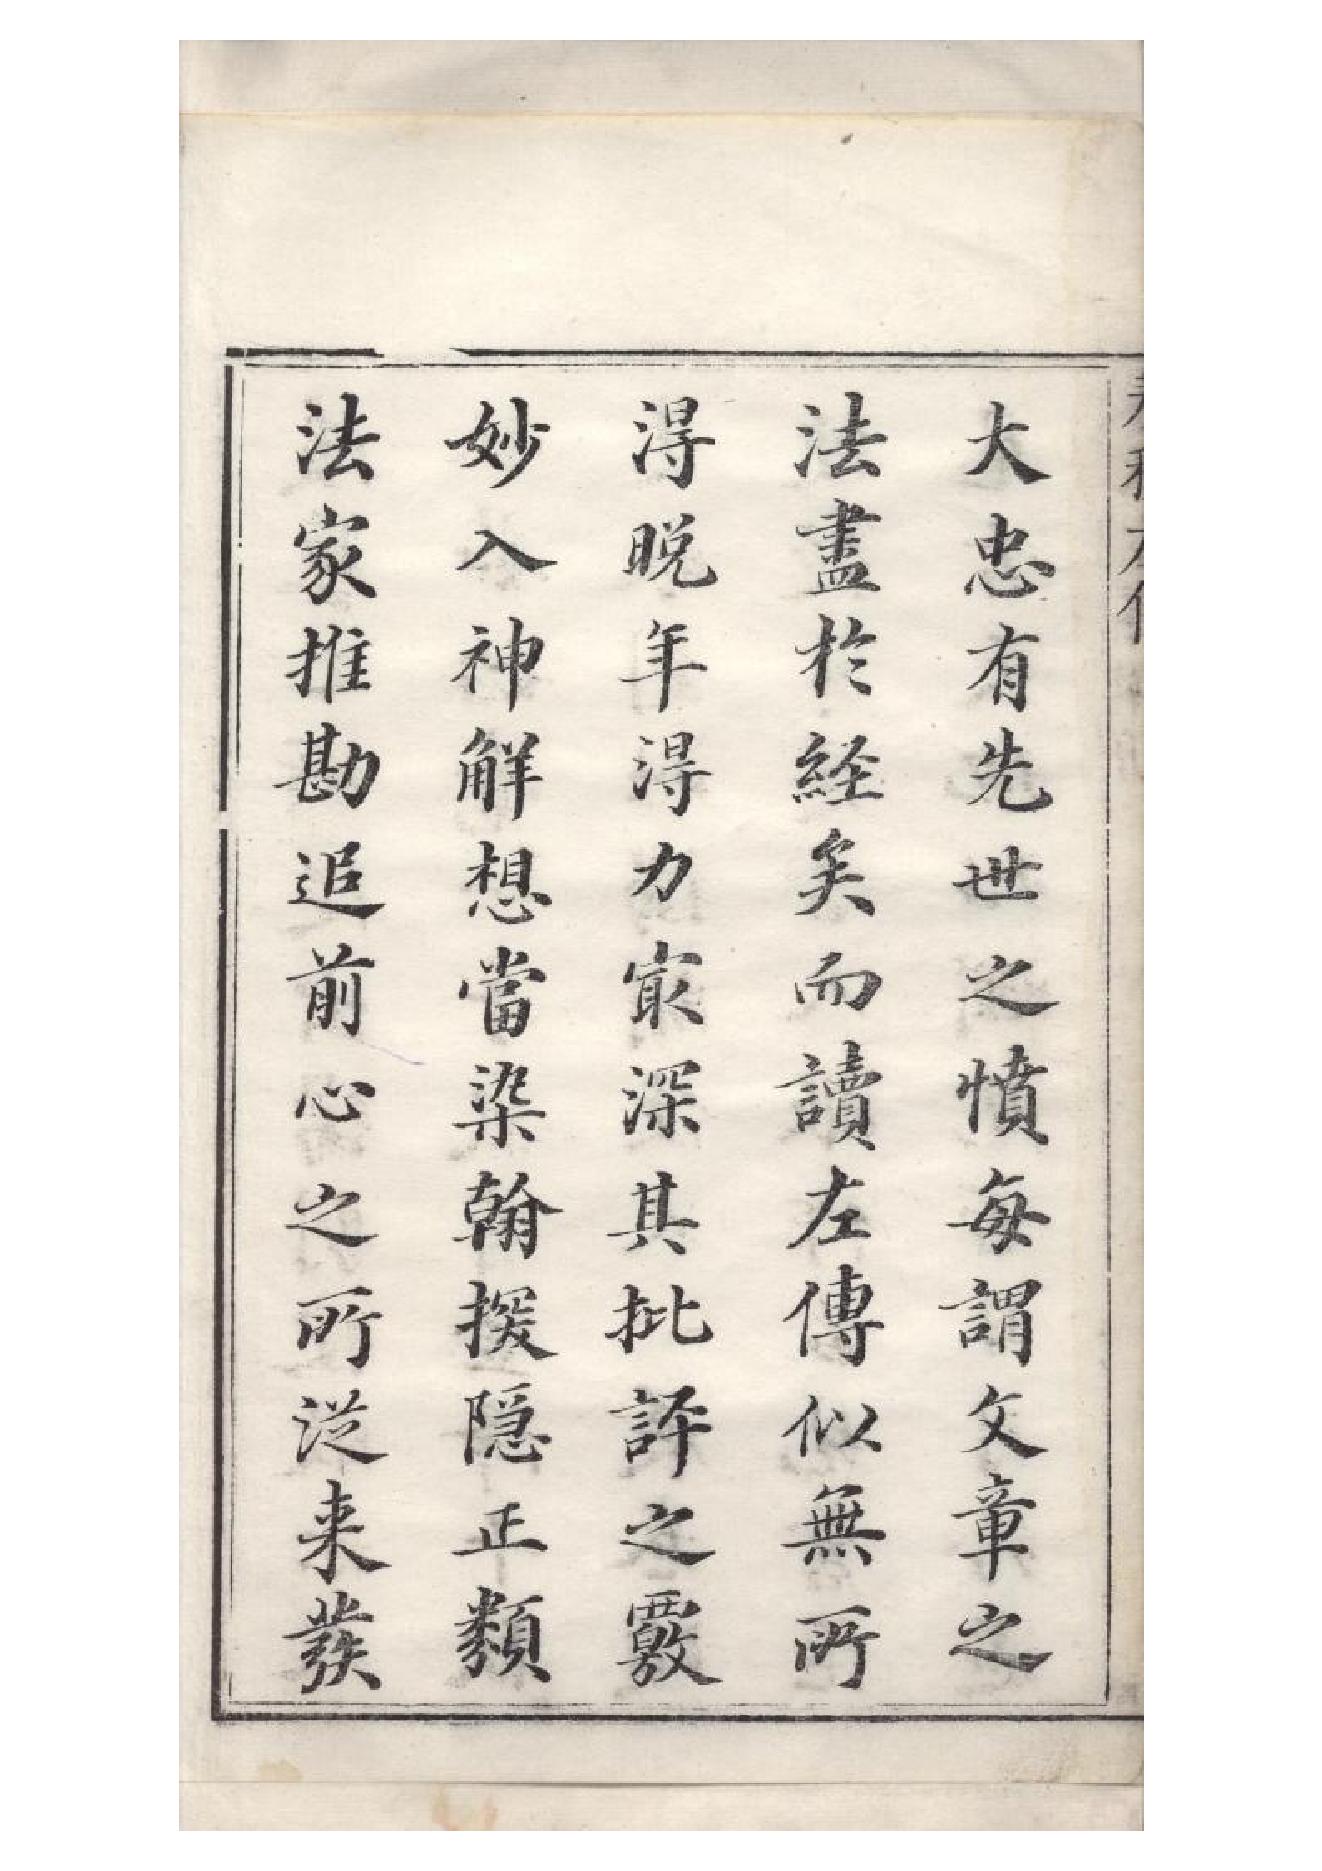 大忠有先世之憤每謂文章之
法盡於経矣而讀左傳似無所
淂晩年淂力㝡深其批評之覈
妙入神解想當染翰探隠正類
法家推勘追前心之所従来發